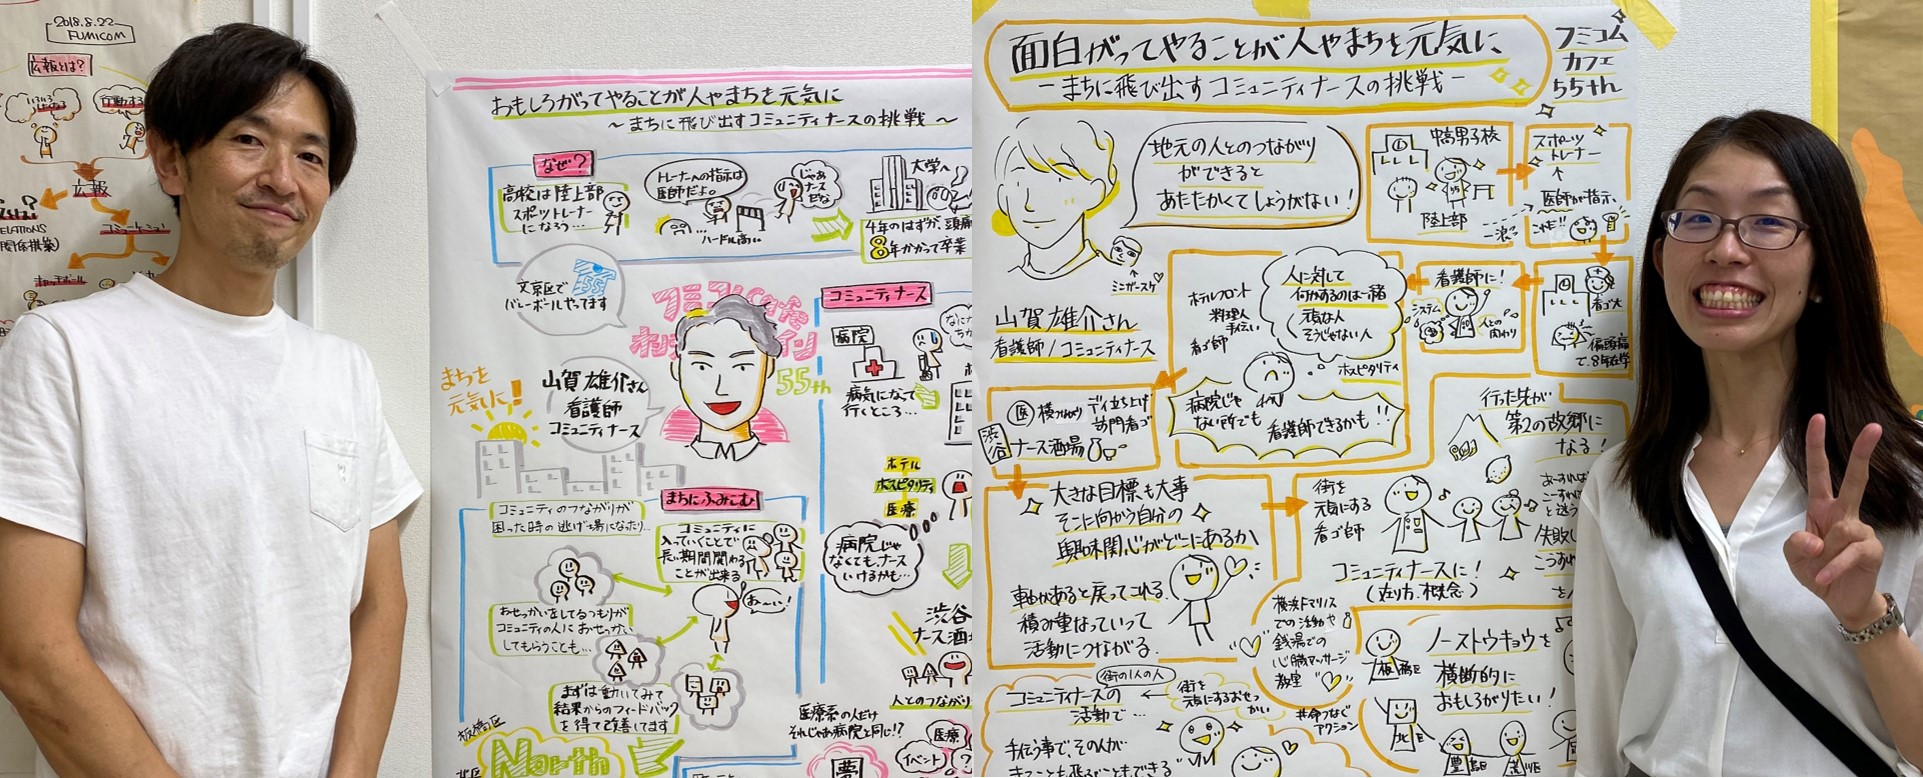 2018.8.22
FUMICOM
広報とは？
行動する
広報
おもしろがってやることが人やまちを元気に
～まちに飛び出すコミュニティナースの挑戦～
なぜ？
高校は陸上部
スポーツトレーナー
になろう…
トレーナーへの指示は
医師だよ。
ハードル高い…
じゃあ
ナース
だな
大学へ
4年のはずが、頭痛
8年かかって卒業
文京区で
バレーボールやってます
55th
まちを
元気に！
山賀 雄介さん
看護師
コミュニティナース
コミュニティナース
病院
病気になって
行くところ…
ホテル
ホスピタリティ
医療
病院じゃ
なくても、ナース
いけるかも…
渋谷
ナース酒場
人とのつながり
まちにふみこむ
コミュニティのつながりが
困った時の逃げ場になたり…
コミュニティに
入っていくことで
長い期間関わる
ことが出来る
あ～い！
おせっかいをしてるつもりが
コミュニティの人におせっかい
してもらうことも…
まずは動いてみて
結果からのフィードバック
を得て改善してます
板橋区
北区
North
医療系の人だけ
それじゃあ病院と同じ!?
医療
イベント
面白がってやることが人やまちを元気に
－まちに飛び出すコミュニティナースの挑戦－
フミコム
カフェ
ちらちゃん
地元の人とのつながり
ができると
あたたかくてしょうがない！
ミニガースケ
山賀 雄介さん
看護師/コミュニティナース
中高男子校
陸上部
スポーツ
トレーナー
医師が指示、
一浪
看護師に！
システム
人との関わり
看ゴ大
偏頭痛
で、8年在学
ホテルフロント
料理人
手伝い
看ゴ師
人に対して
何かするのは一緒
頑な人
そうじゃない人
ホスピタリティ
病院じゃ
ない所でも
看護師できるかも!!
医 横つながり
デイ立上げ
訪門看ゴ
渋谷
ナース酒場
大きな目標も大事
そこに向かう自分の
興味関心がどこにあるか
軸があると戻ってこれる。
積み重なっていって
活動につながる。
行った先が
第2の故郷に
なる！
街を
元気にする
看ゴ師
コミュニティナースに！
（在り方、概念）
横浜Fマリノス
での活動や
銭湯での
心臓マッサージ
教室
#命つなぐ
アクション
ノーストウキョウを
横断的に
おもしろがりたい！
板橋区
北区
豊島区
荒川区
街の1人の人
コミュニティナースの
活動で…
街を
元気にするおせっ
かい
手伝う事で、その人が